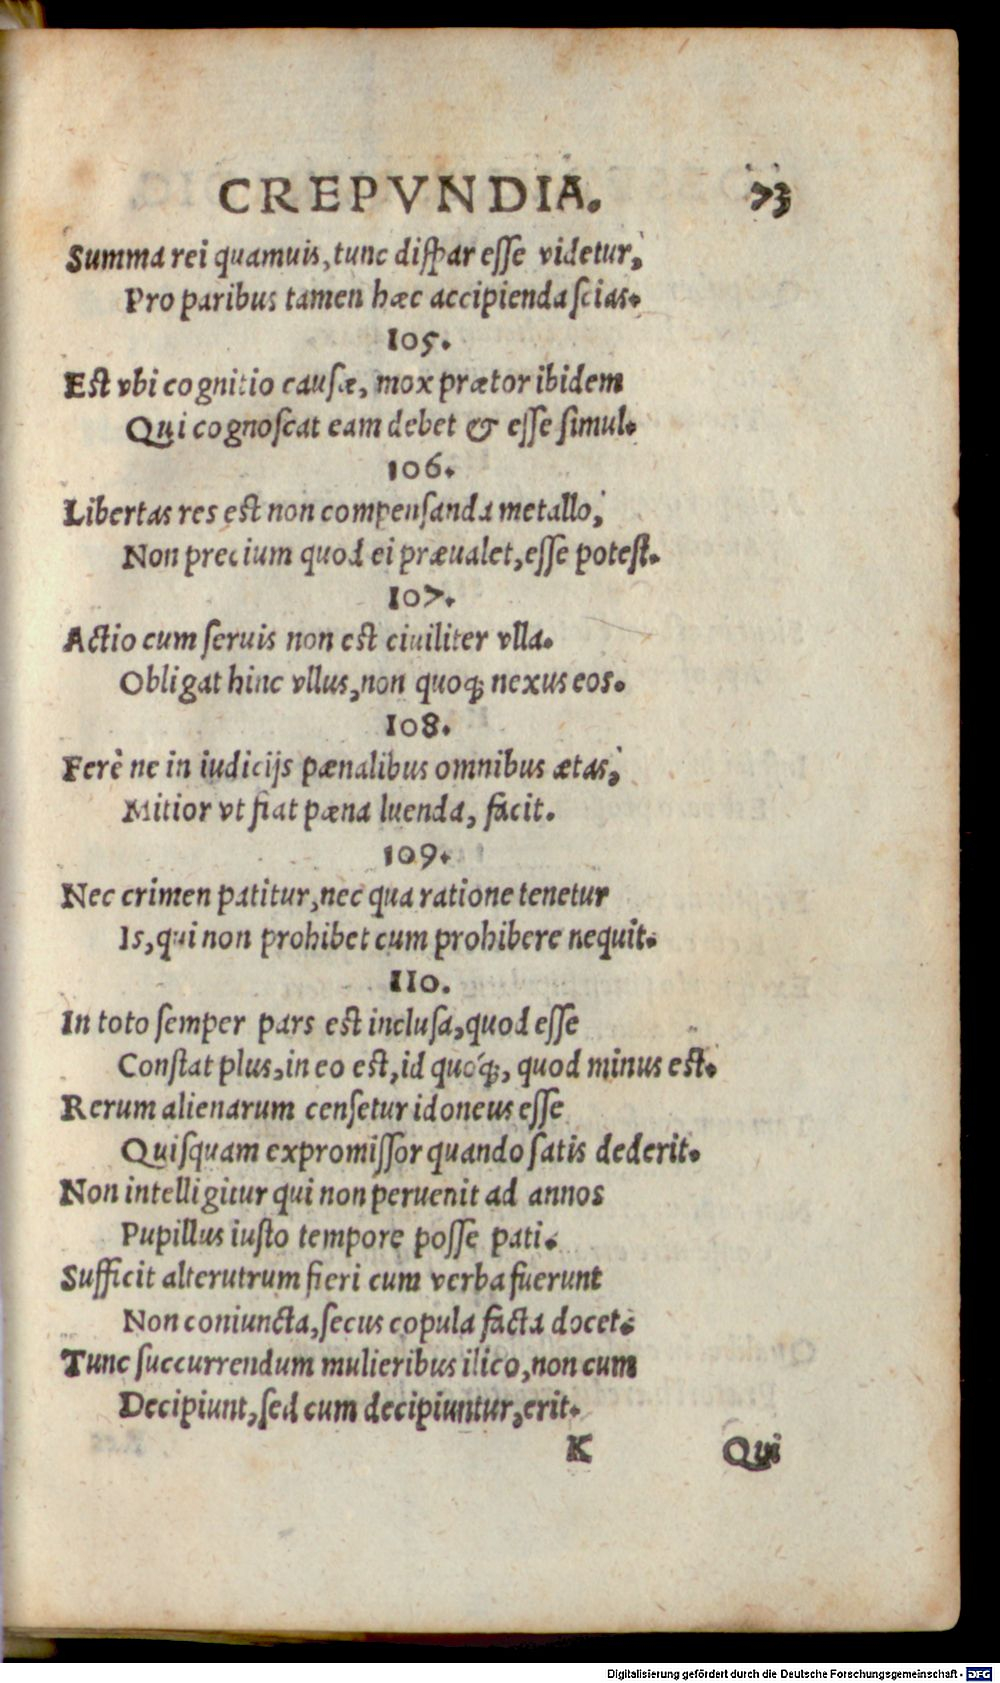 CREPVNDIA. 73
Summa rei quamuis, tunc dispar esse videtur,
Pro paribus tamen hæc accipienda scias.
105.
Est vbi cognitio causæ, mox prætor ibidem
Qui cognoscat eam debet & esse simul.
106.
Libertas res est non compensanda metallo,
Non precium quod ei præualet, esse potest.
107.
Actio cum seruis non est ciuiliter vlla.
Obligat hinc vllus, non quoq; nexus eos.
108.
Ferè ne in iudicijs pænalibus omnibus ætas,
Mitior vt fiat pæna luenda, facit.
109.
Nec crimen patitur, nec qua ratione tenetur
Is, qui non prohibet cum prohibere nequit.
110.
In toto semper pars est inclusa, quod esse
Constat plus, in eo est, id quóq;, quod minus est.
Rerum alienarum censetur idoneus esse
Quisquam expromissor quando satis dederit.
Non intelligitur qui non peruenit ad annos
Pupillus iusto tempore posse pati.
Sufficit alterutrum fieri cum verba fuerunt
Non coniuncta, secus copula facta docet.
Tunc succurrendum mulieribus ilico, non cum
Decipiunt, sed cum decipiuntur, erit.
K Qui
Digitalisierung gefördert durch die Deutsche Forschungsgemeinschaft - DFG